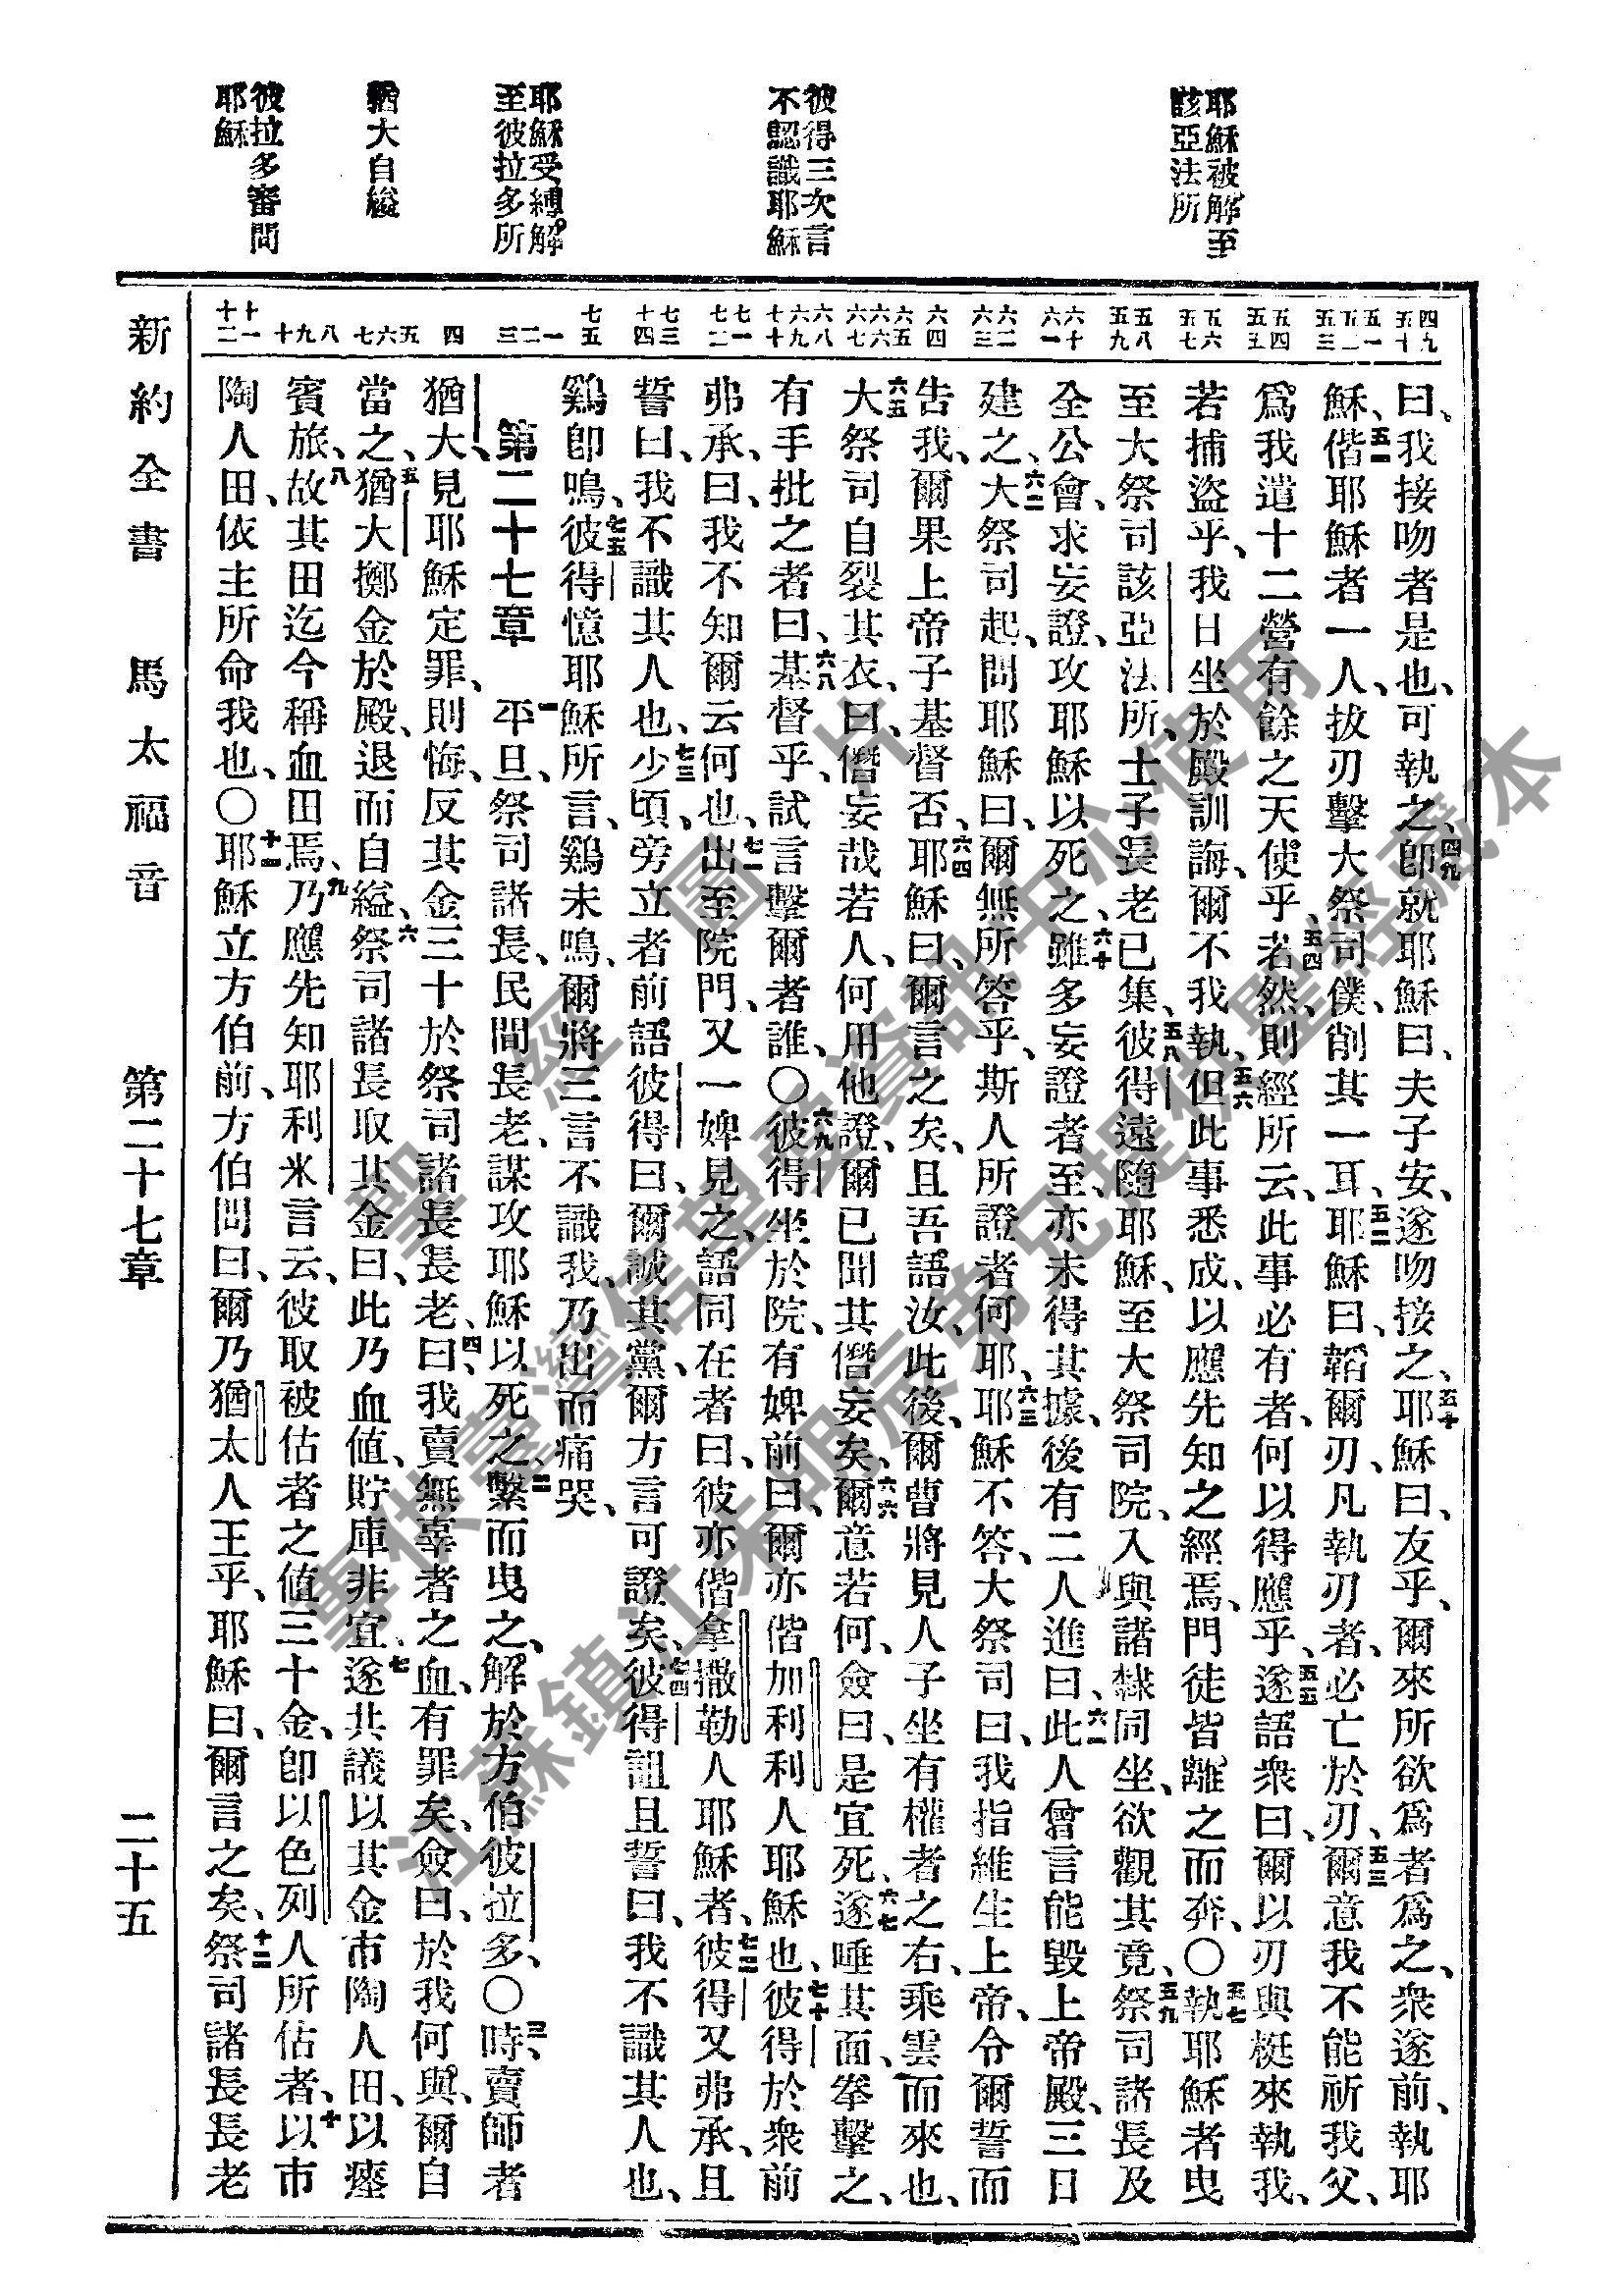 耶穌被解至
該亞法所
彼得三次言
不認識耶穌
耶穌受縛解
至彼拉多所
猶大自縊
彼拉多審問
耶穌
四九 五十
五一 五二 五三
五四 五五
五六 五七
五八 五九
六十 六一
六二 六三
六四
六五 六六 六七
六八 六九 七十
七一 七二
七三 七四
七五
一 二 三
四
五 六 七
八 九 十
十一 十二
曰、我接吻者是也、可執之、四九卽就耶穌曰、夫子安、遂吻接之、五十耶穌曰、友乎、爾來所欲爲者爲之、衆遂前、執耶
穌、五一偕耶穌者一人、拔刃擊大祭司僕、削其一耳、五二耶穌曰、韜爾刃、凡執刃者、必亡於刃、五三爾意我不能祈我父、
爲我遣十二營有餘之天使乎、五四若然、則經所云、此事必有者、何以得應乎、五五遂語衆曰、爾以刃與梃來執我、
若捕盜乎、我日坐於殿訓誨、爾不我執、五六但此事悉成、以應先知之經焉、門徒皆離之而奔、〇五七執耶穌者曳
至大祭司該亞法所、士子長老已集、五八彼得遠隨耶穌、至大祭司院、入與諸隸同坐、欲觀其竟、五九祭司諸長及
全公會、求妄證、攻耶穌以死之、六十雖多妄證者至、亦未得其據、後有二人進曰、六一此人曾言能毀上帝殿、三日
建之、六二大祭司起、問耶穌曰、爾無所答乎、斯人所證者何耶、六三耶穌不答、大祭司曰、我指維生上帝、令爾誓而
告我、爾果上帝子基督否、六四耶穌曰、爾言之矣、且吾語汝、此後、爾曹將見人子坐有權者之右、乘雲而來也、
六五大祭司自裂其衣、曰、僭妄哉若人、何用他證、爾已聞其僭妄矣、六六爾意若何、僉曰、是宜死、六七遂唾其面、拳擊之、
有手批之者曰、六八基督乎、試言擊爾者誰、〇六九彼得坐於院、有婢前曰、爾亦偕加利利人耶穌也、七十彼得於衆前
弗承、曰、我不知爾云何也、七一出至院門、又一婢見之、語同在者曰、彼亦偕拿撒勒人耶穌者、七二彼得又弗承、且
誓曰、我不識其人也、七三少頃、旁立者前語彼得曰、爾誠其黨、爾方言可證矣、七四彼得詛且誓曰、我不識其人也、
鷄卽鳴、七五彼得憶耶穌所言、鷄未鳴、爾將三言不識我、乃出而痛哭、
第二十七章 一平旦、祭司諸長、民間長老、謀攻耶穌以死之、二繫而曳之、解於方伯彼拉多、〇三時、賣師者
猶大、見耶穌定罪、則悔、反其金三十於祭司諸長長老、四曰、我賣無辜者之血、有罪矣、僉曰、於我何與、爾自
當之、五猶大擲金於殿、退而自縊、六祭司諸長取其金曰、此乃血値、貯庫非宜、七遂共議以其金市陶人田、以瘞
賓旅、八故其田迄今稱血田焉、九乃應先知耶利米言云、彼取被估者之値三十金、卽以色列人所估者、十以市
陶人田、依主所命我也、〇十一耶穌立方伯前、方伯問曰、爾乃猶太人王乎、耶穌曰、爾言之矣、十二祭司諸長長老
新約全書 馬太福音 第二十七章 二十五
聖經圖片
專供臺灣信望愛資訊中心使用
江蘇鎮江朱明辰弟兄提供聖經藏本